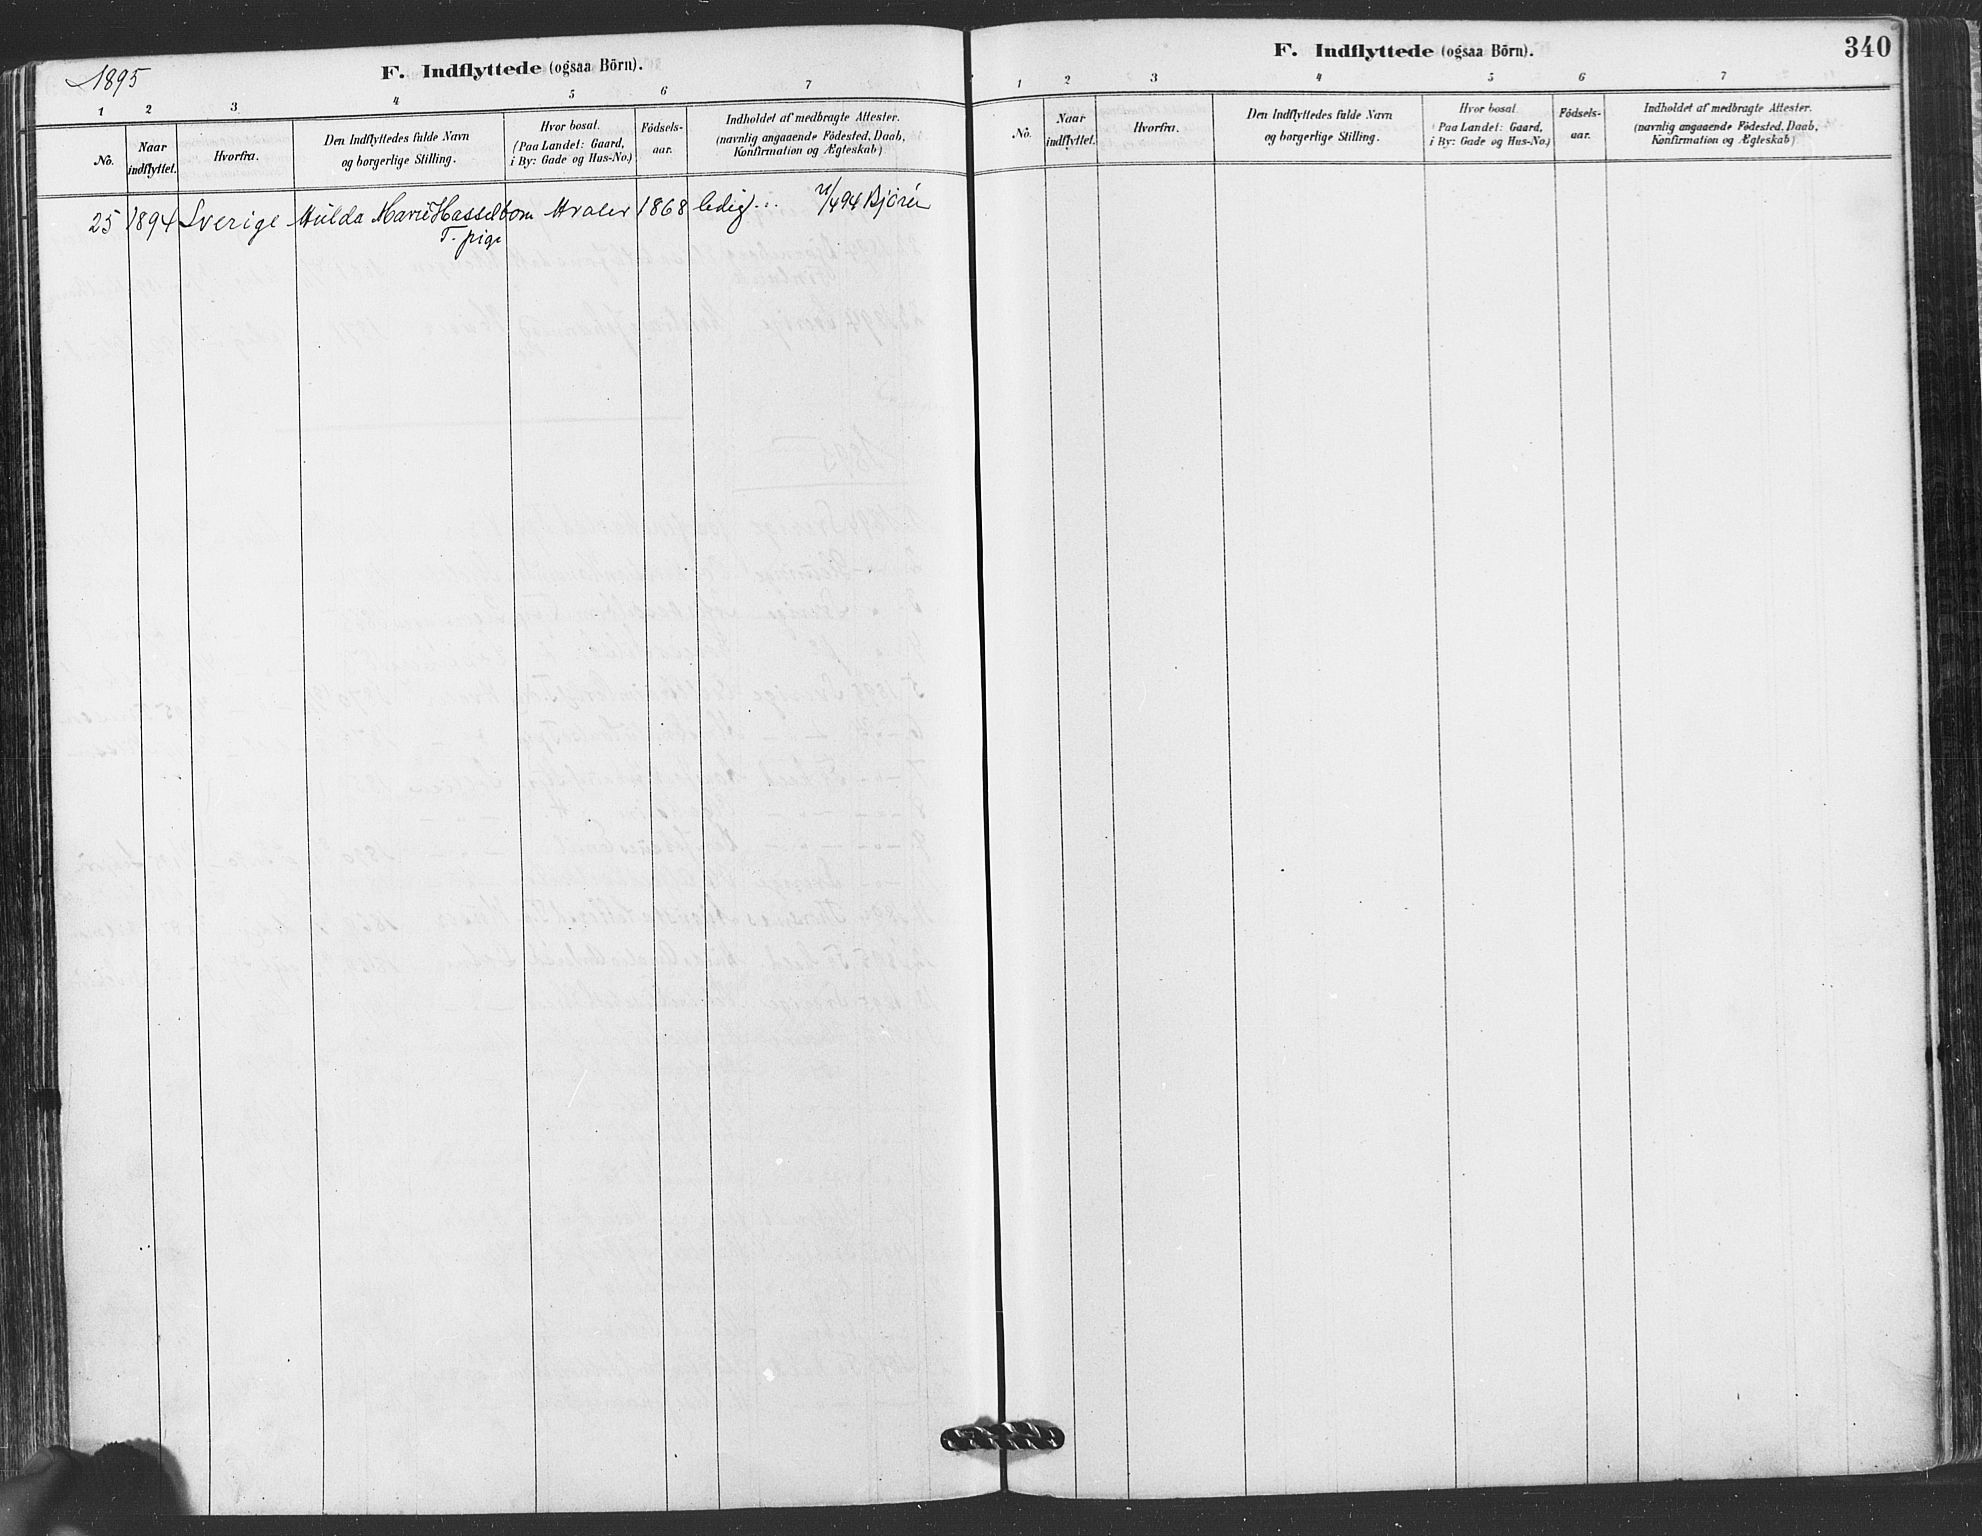 1895
F. Indflyttede (ogsaa Börn).
1 2 3 4 5 6 7
No.
Naar indflyttet.
Hvorfra.
Den Indflyttedes fulde Navn
og borgerlige Stilling.
Hvor bosat.
(Paa Landet: Gaard,
i By: Gade og Hus-No.)
Födsels-
aar.
Indholdet af medbragte Attester.
(navnlig angaaende Födested, Daab,
Konfirmation og Ægteskab)
25 1894 Sverige Hulda Marie Hasselbom Hvaler 1868 ledig
T. pige
F. Indflyttede (ogsaa Börn).
340
1 2 3 4 5 6 7
No.
Naar
indflyttet.
Hvorfra.
Den Indflyttedes fulde Navn
og borgerlige Stilling.
Hvor bosat.
(Paa Landet: Gaard,
i By: Gade og Hus-No.)
Födsels-
aar.
Indholdet af medbragte Attester.
(navnlig angaaende Födested, Daab,
Konfirmation og Ægteskab)